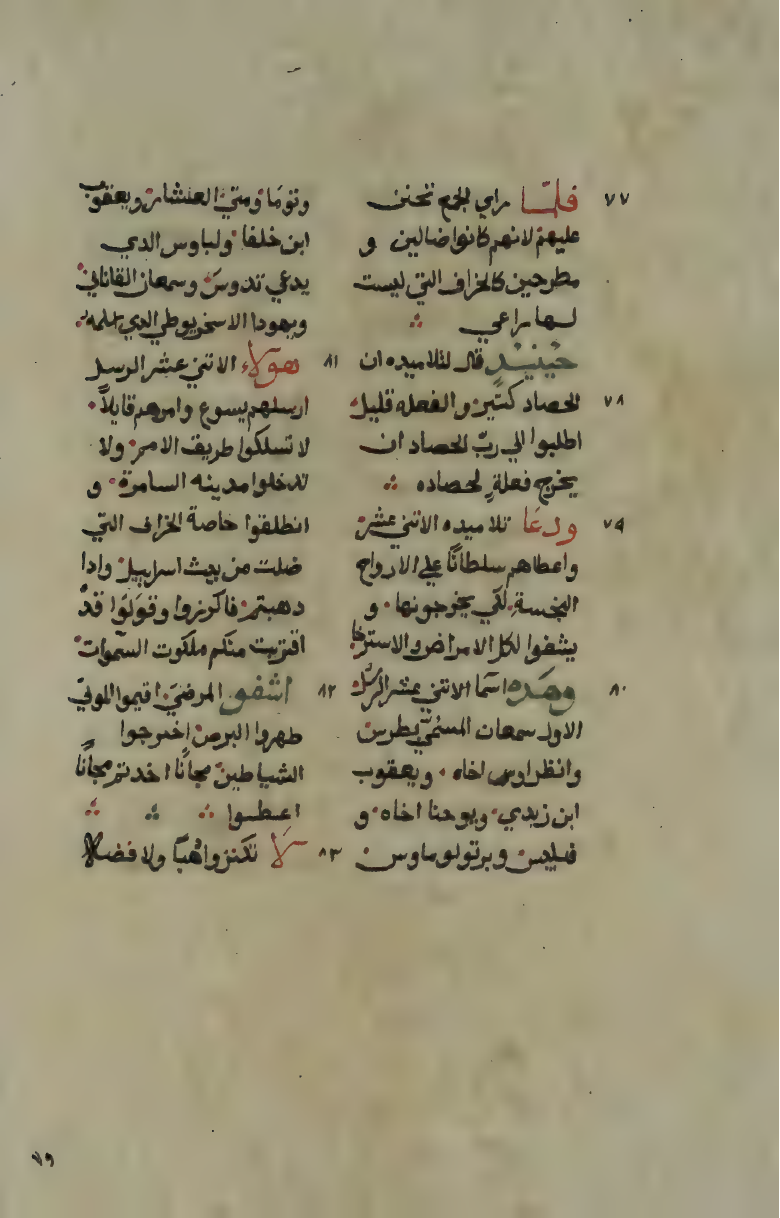 ٧٧ فلمّا راي الجمع تحنن
عليهم لانهم كانوا ضالين و
مطرحين كالخراف التي ليست
لها راعي
حينيدٍ قال لتلاميده ان
٧٨ الحصاد كتير والفعله قليل
اطلبوا الي ربّ الحصاد ان
يخرج فعلةٍ لحصاده
٧٩ ودعَا تلاميده الاتني عشر
واعطاهم سلطانًا علي الارواح
النجسةِ لكي يخرجونها و
يشفوا لكل الامراض والاسترخا
٨٠ وهده اسما الاتني عشر الرسل
الاول سمعان المسمّي بطرس
واندراوس اخاه ويعقوب
ابن زبدي ويوحنا اخاه و
فيلبس وبرتولوماوس
وتومَا ومتيّ العشار ويعقوب
ابن حلفا ولباوس الدي
يدعي تدوس وسمعان القاناني
ويهودا الاسخريوطي الدي اسلمه
٨١ هولاء الاتني عشر الرسل
ارسلهم يسوع وامرهم قايلاً
لا تسلكوا طريق الامم ولا
تدخلوا مدينه السامرة و
انطلقوا خاصة الخراف التي
ضلت من بيت اسراييل وادا
دهبتم فاكرزوا وقولوا قد
اقتربت منكم ملكوت السموات
٨٢ اشفو المرضي اقيموا الموتي
طهروا البرص اخرجوا
الشياطين مجانًا اخدتم مجانًا
اعطوا
٨٣ لا تكنزوا دهبًا ولا فضة ولا
٧٩